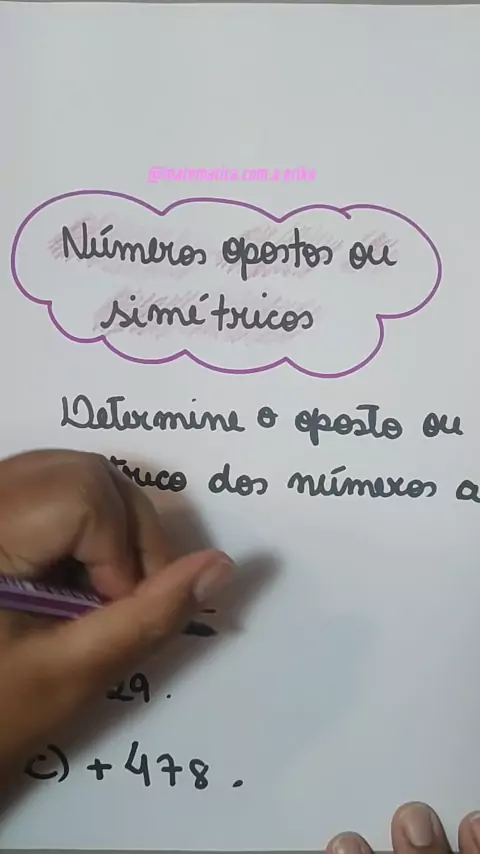 @matematica.com.a.erika
Números opostos ou
simétricos
Determine o oposto ou
dos números a
29.
c) + 478.